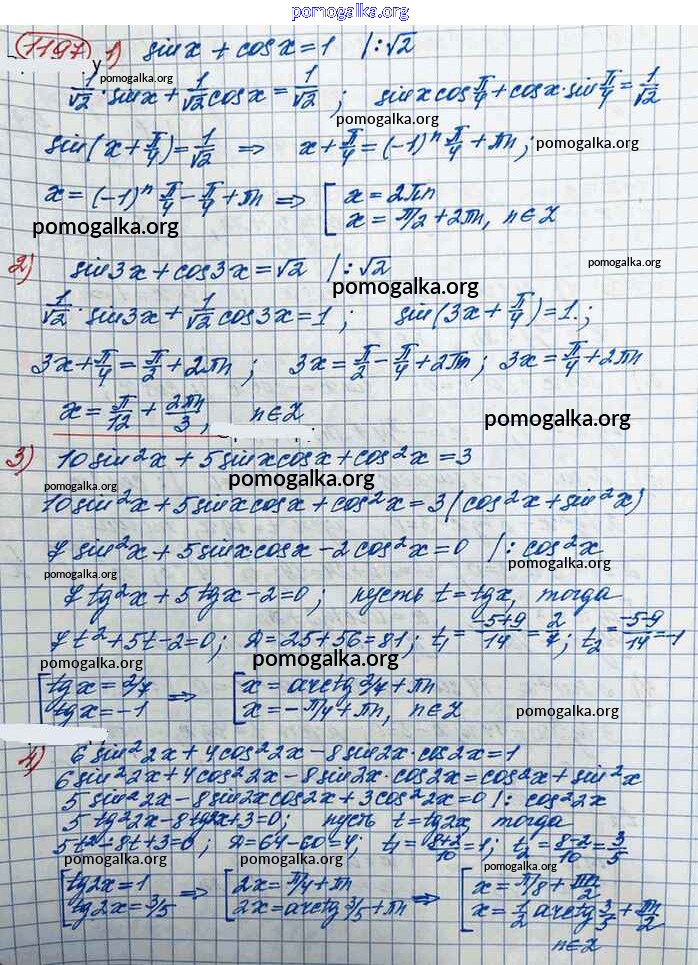 pomogalka.org
1197 1) sinx + cosx = 1 /:√2
pomogalka.org
1/√2 · sinx + 1/√2 cosx = 1/√2 ; sinx cos π/4 + cosx · sin π/4 = 1/√2
pomogalka.org
sin(x + π/4) = 1/√2 => x + π/4 = (-1)ⁿ π/4 + πn;
pomogalka.org
x = (-1)ⁿ π/4 - π/4 + πn => [ x = 2πn
x = π/2 + 2πn, n∈Z
pomogalka.org
2) sin3x + cos3x = √2 /:√2
pomogalka.org
pomogalka.org
1/√2 · sin3x + 1/√2 cos3x = 1 ; sin(3x + π/4) = 1.;
pomogalka.org
3x + π/4 = π/2 + 2πn ; 3x = π/2 - π/4 + 2πn ; 3x = π/4 + 2πn
x = π/12 + 2πn/3, n∈Z
pomogalka.org
3) 10sin²x + 5sinxcosx + cos²x = 3
pomogalka.org
10sin²x + 5sinxcosx + cos²x = 3(cos²x + sin²x)
pomogalka.org
7sin²x + 5sinxcosx - 2cos²x = 0 /: cos²x
pomogalka.org
pomogalka.org
7tg²x + 5tgx - 2 = 0 ; пусть t = tgx, тогда
7t² + 5t - 2 = 0 ; Д = 25 + 56 = 81 ; t₁ = -5+9/14 = 2/7 ; t₂ = -5-9/14 = -1
pomogalka.org
pomogalka.org
[ tgx = 2/7 => [ x = arctg 2/7 + πn
tgx = -1 x = -π/4 + πn, n∈Z
pomogalka.org
4) 6sin²2x + 4cos²2x - 8sin2x·cos2x = 1
6sin²2x + 4cos²2x - 8sin2x·cos2x = cos²x + sin²x
5sin²2x - 8sin2xcos2x + 3cos²2x = 0 /: cos²2x
5tg²2x - 8tg2x + 3 = 0 ; пусть t = tg2x, тогда
5t² - 8t + 3 = 0 ; Д = 64 - 60 = 4 ; t₁ = 8+2/10 = 1 ; t₂ = 8-2/10 = 3/5
pomogalka.org
pomogalka.org
pomogalka.org
[ tg2x = 1 => [ 2x = π/4 + πn => [ x = π/8 + πn/2
tg2x = 3/5 2x = arctg 3/5 + πn x = 1/2 arctg 3/5 + πn/2
n∈Z
pomogalka.org